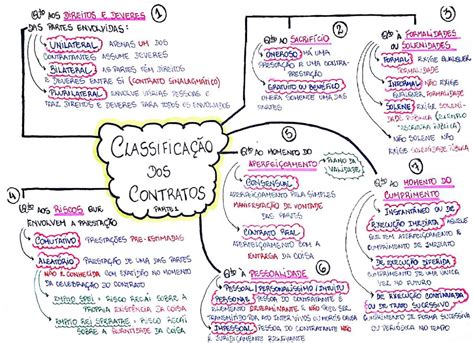 CLASSIFICAÇÃO
DOS
CONTRATOS
PARTE 1
① Qto AOS DIREITOS E DEVERES
DAS PARTES ENVOLVIDAS:
UNILATERAL: APENAS UM DOS
CONTRATANTES ASSUME DEVERES
BILATERAL: AS PARTES TÊM DIREITOS
E DEVERES ENTRE SI (CONTRATO SINALAGMÁTICO)
PLURILATERAL: ENVOLVE VÁRIAS PESSOAS E
TRAZ DIREITOS E DEVERES PARA TODOS OS ENVOLVIDOS
② Qto AO SACRIFÍCIO
ONEROSO: HÁ UMA
PRESTAÇÃO A UMA CONTRA-
PRESTAÇÃO
GRATUITO OU BENÉFICO
ONERA SOMENTE UMA DAS
③ Qto À FORMALIDADES
OU SOLENIDADES
FORMAL: EXIGE QUALQUER
FORMALIDADE
INFORMAL: NÃO EXIGE
QUALQUER FORMALIDADE
SOLENE: EXIGE
SOLENIDADE PÚBLICA
NÃO SOLENE: NÃO
EXIGE SOLENIDADE PÚBLICA
④ Qto AOS RISCOS QUE
ENVOLVEM A PRESTAÇÃO
COMUTATIVO: PRESTAÇÕES PRÉ-ESTIMADAS
ALEATÓRIO: PRESTAÇÃO DE UMA DAS PARTES
NÃO É CONHECIDA COM EXATIDÃO NO MOMENTO
DA CELEBRAÇÃO DO CONTRATO
EMPTIO SPEI: RISCO RECAI SOBRE A
PRÓPRIA EXISTÊNCIA DA COISA
EMPTIO REI SPERATAE: RISCO RECAI SOBRE
A QUANTIDADE DA COISA
⑤ Qto AO MOMENTO DO
APERFEIÇOAMENTO
PLANO DA
VALIDADE
CONSENSUAL:
APERFEIÇOAMENTO PELA SIMPLES
MANIFESTAÇÃO DE VONTADE
DAS PARTES
CONTRATO REAL:
APERFEIÇOAMENTO COM A
ENTREGA DA COISA
⑥ Qto À PESSOALIDADE
PESSOAL / PERSONALÍSSIMO / INTUITU
PERSONAE: PESSOA DO CONTRATANTE É
ELEMENTO DETERMINANTE E NÃO PODE SER
TRANSMITIDA
IMPESSOAL: PESSOA DO CONTRATANTE NÃO
É JURIDICAMENTE RELEVANTE
⑦ Qto AO MOMENTO DO
CUMPRIMENTO
INSTANTÂNEO OU DE
EXECUÇÃO IMEDIATA: AQUELE
QUE TEM APERFEIÇOAMENTO E
CUMPRIMENTO DE IMEDIATO
DE EXECUÇÃO DIFERIDA
CUMPRIMENTO DE
UMA VEZ
NO FUTURO
DE EXECUÇÃO CONTINUADA
OU DE TRATO SUCESSIVO